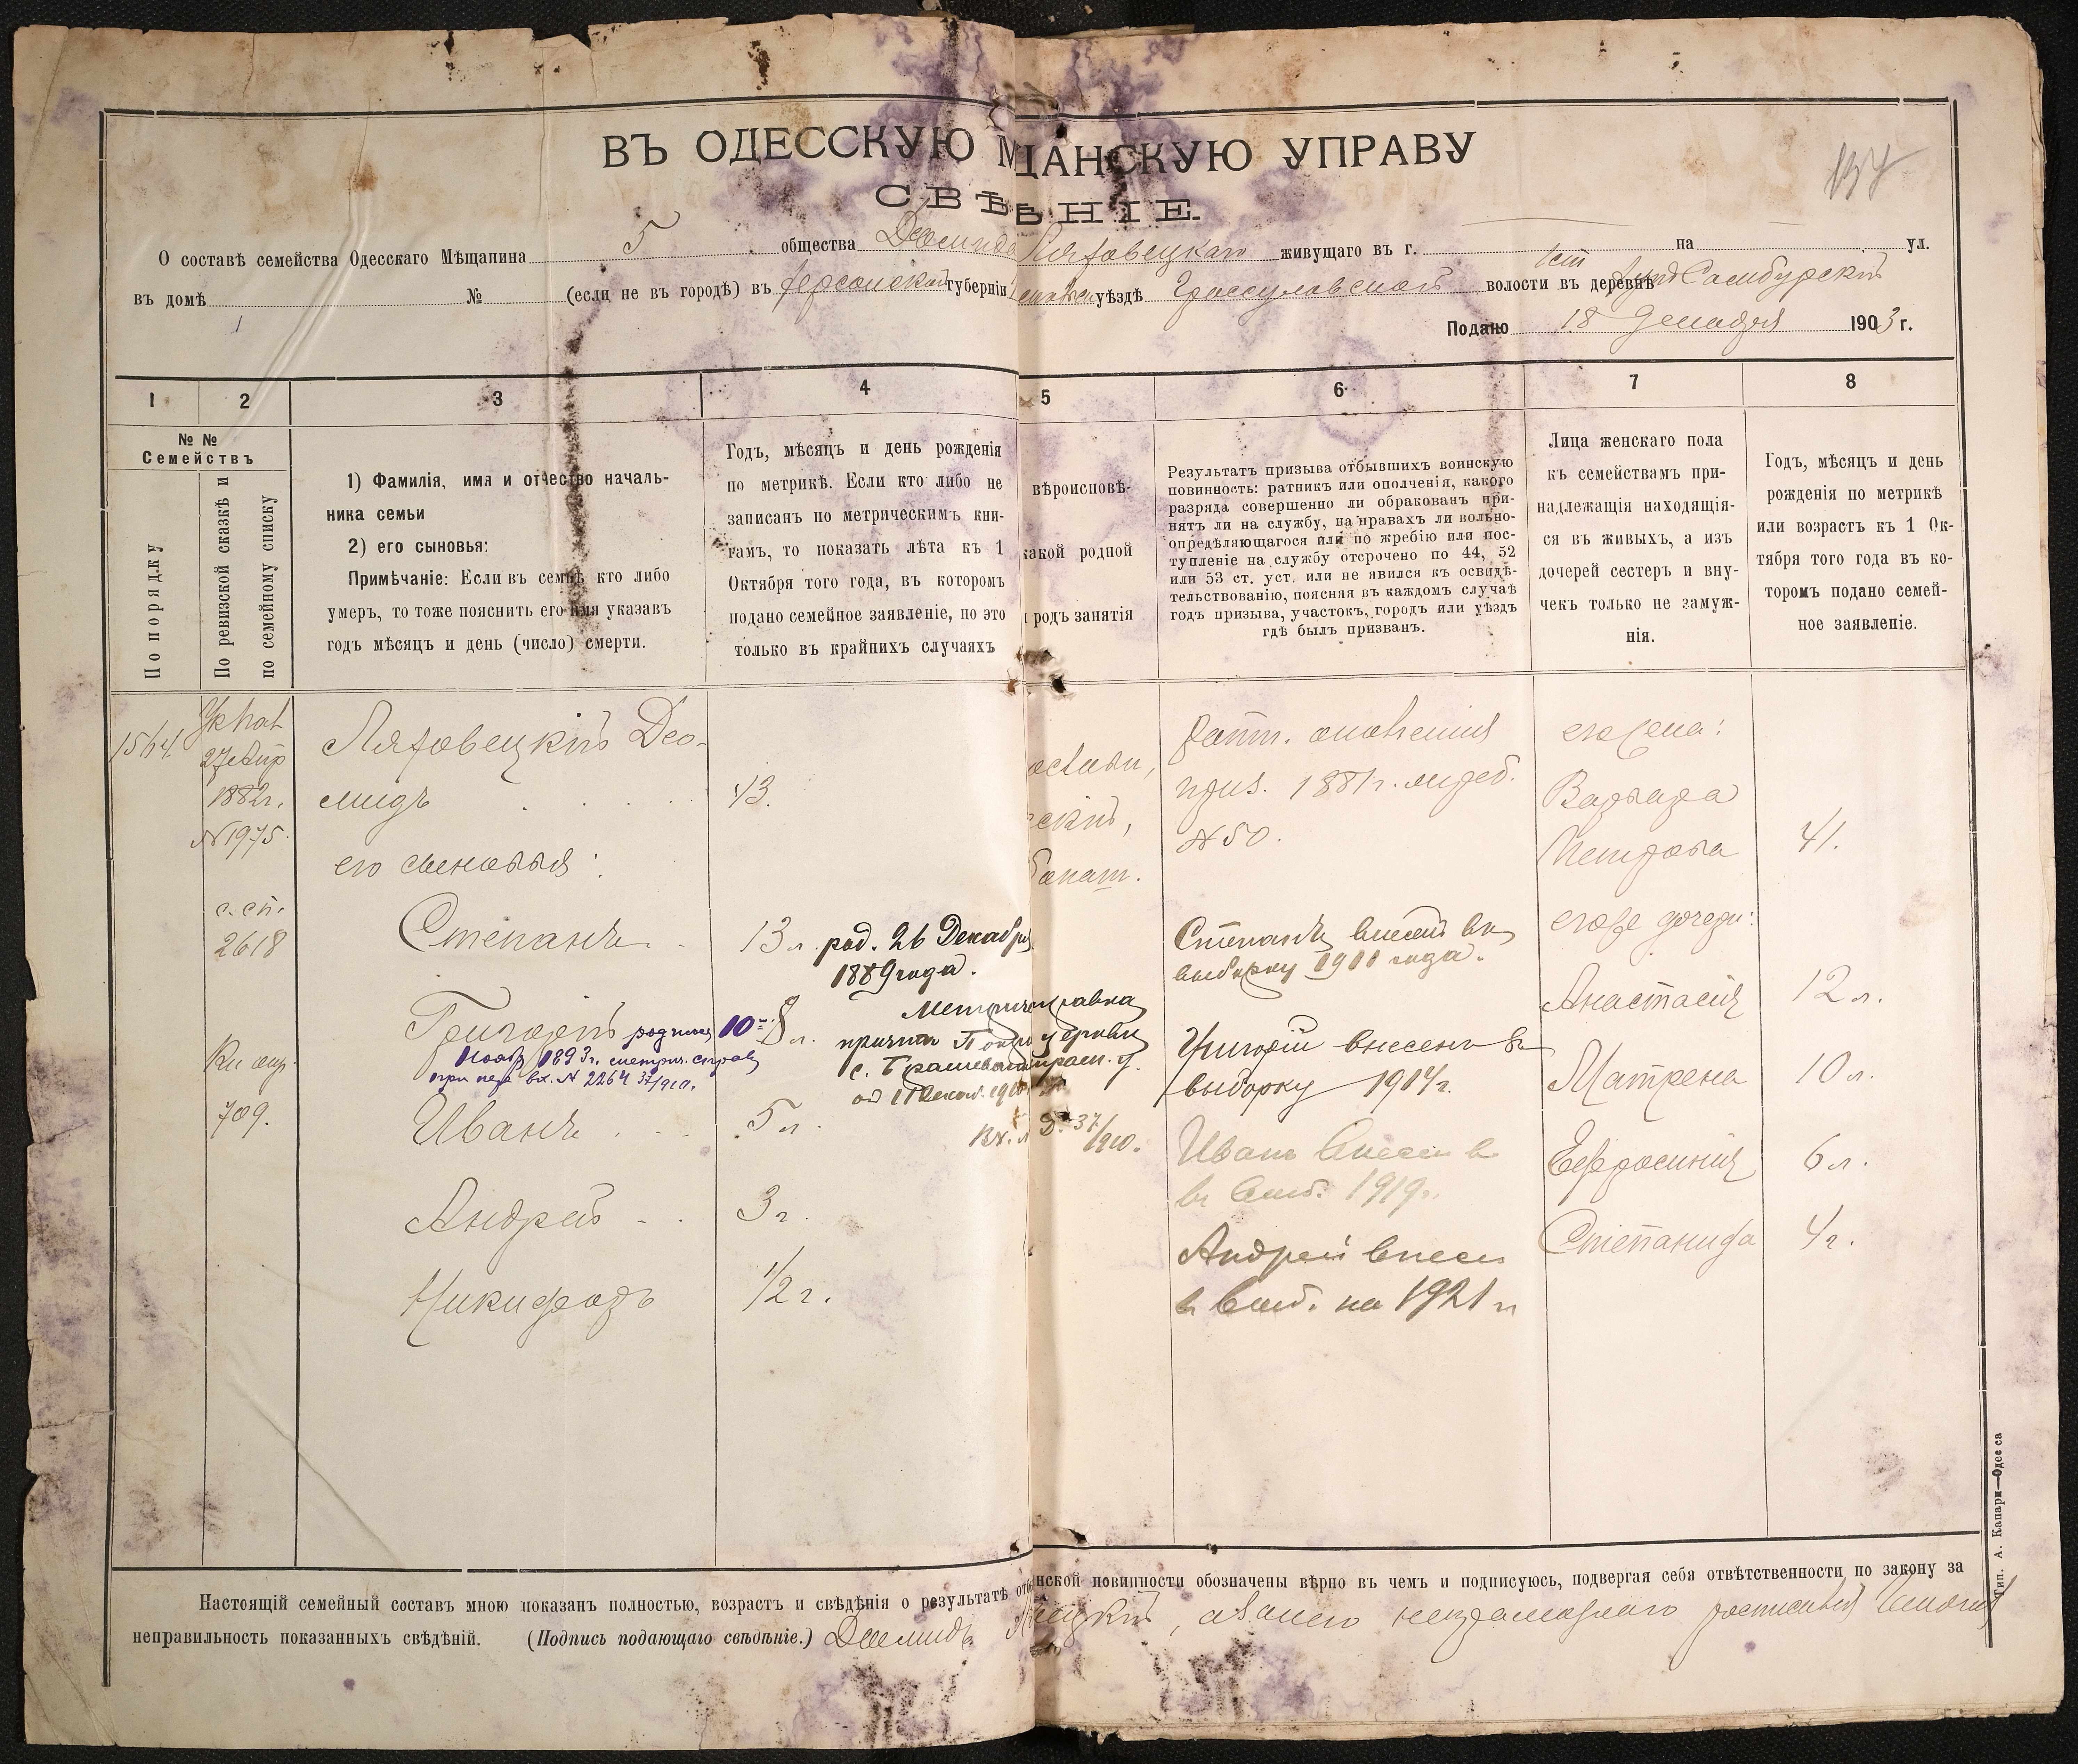 ВЪ ОДЕССКУЮ М ЩАНСКУЮ УПРАВУ
СВѢ ѢНІЕ.
137
О составѣ семейства Одесскаго Мѣщанина 5 общества Деомида Ляховецкаго живущаго въ г. на ул.
въ домѣ № (если не въ городѣ) въ Херсонской губерніи уѣздѣ Гроссуловской волости въ деревнѣ
Подано 18 Декабря 1903 г.
1 2 3 4 5 6 7 8
№ №
Семействъ
По порядку
По ревизской сказкѣ и
по семейному списку
1) Фамилія, имя и отчество началь-
ника семьи
2) его сыновья:
Примѣчаніе: Если въ семьѣ кто либо
умеръ, то тоже пояснить его имя указавъ
годъ мѣсяцъ и день (число) смерти.
Годъ, мѣсяцъ и день рожденія
по метрикѣ. Если кто либо не
записанъ по метрическимъ кни-
гамъ, то показать лѣта къ 1
Октября того года, въ которомъ
подано семейное заявленіе, но это
только въ крайнихъ случаяхъ
вѣроисповѣ-
какой родной
и родъ занятія
Результатъ призыва отбывшихъ воинскую
повинность: ратникъ или ополченія, какого
разряда совершенно ли обракованъ при-
нятъ ли на службу, на правахъ ли вольно-
опредѣляющагося или по жребію или пос-
тупленіе на службу отсрочено по 44, 52
или 53 ст. уст. или не явился къ освидѣ-
тельствованію, поясняя въ каждомъ случаѣ
годъ призыва, участокъ, городъ или уѣздъ
гдѣ былъ призванъ.
Лица женскаго пола
къ семействамъ при-
надлежащія находящія-
ся въ живыхъ, а изъ
дочерей сестеръ и вну-
чекъ только не замуж-
нія.
Годъ, мѣсяцъ и день
рожденія по метрикѣ
или возрастъ къ 1 Ок-
тября того года въ ко-
торомъ подано семей-
ное заявленіе.
1564.
27 Апр
1882 г.
№ 1975.
с. сп.
2618
709.
Ляховецкій Део-
мидъ
43.
его сыновья:
Степанъ
13 л. род. 26 Декабря
1889 года.
Григорій родился 10 8 л.
Ноябр 1893 г. метрич. справ
вх. № 2264 37/910.
с.
Вх. 37/910.
Иванъ
5 л.
Андрей
3 г.
Никифоръ
1/2 г.
Ратн. ополченія
приз. 1881 г. жреб.
№ 50.
Степанъ внесенъ въ
выборку 1911 года.
Григорій внесенъ въ
выборку 1914 г.
Иванъ внесен в
в 1919 г.
Андрей внесен
в выб. на 1921 г.
его жена:
Варвара
Петрова
41.
его же дочери:
Анастасія
12 л.
Матрена
10 л.
Ефросинія
6 л.
Степанида
4 г.
Настоящій семейный составъ мною показанъ полностью, возрастъ и свѣдѣнія о результатѣ нской повинности обозначены вѣрно въ чемъ и подписуюсь, подвергая себя отвѣтственности по закону за
неправильность показанныхъ свѣдѣній. (Подпись подающаго свѣдѣніе.) Деомидъ , а за него неграмотнаго росписался
Тип. А. Капари—Одесса